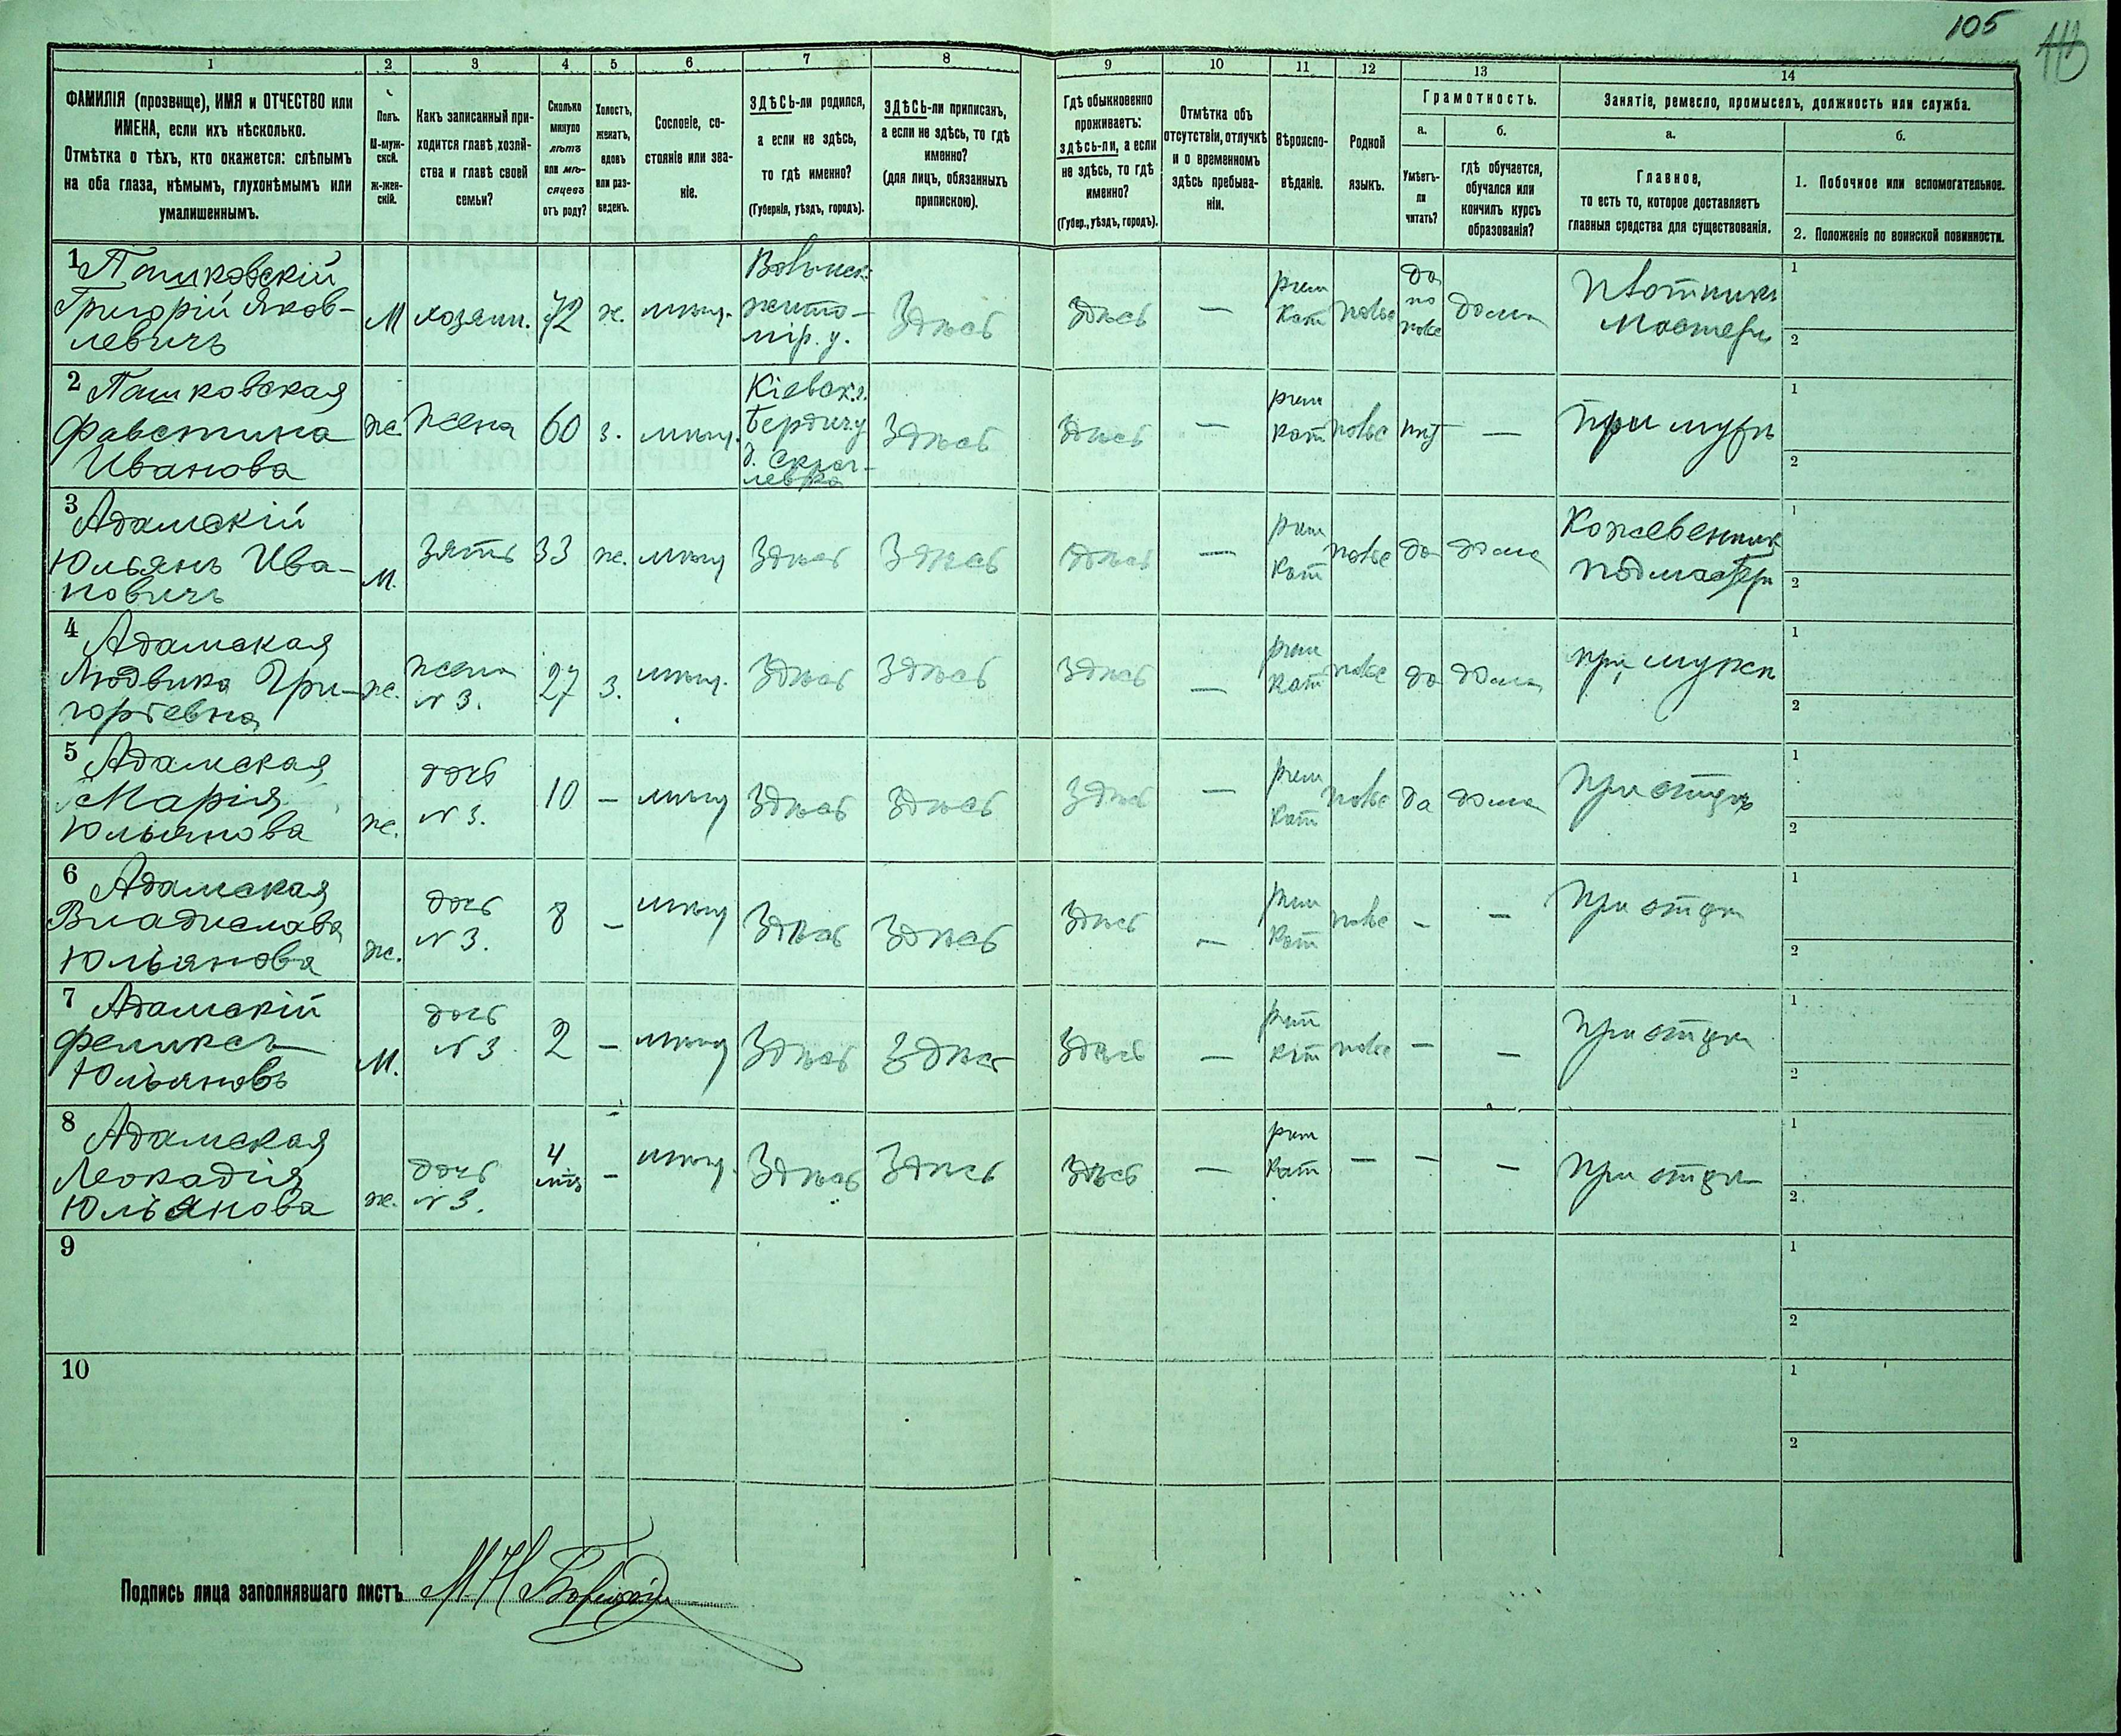 105
1
2
3
4
5
6
7
8
9
10
11
12
13
14
ФАМИЛІЯ (прозвище), ИМЯ и ОТЧЕСТВО или
ИМЕНА, если ихъ нѣсколько.
Отмѣтка о тѣхъ, кто окажется: слѣпымъ
на оба глаза, нѣмымъ, глухонѣмымъ или
умалишеннымъ.
Полъ.
М-муж-
ской.
Ж-жен-
скій.
Какъ записанный при-
ходится главѣ хозяй-
ства и главѣ своей
семьи?
Сколько
минуло
лѣтъ
или мѣ-
сяцевъ
отъ роду?
Холостъ,
женатъ,
вдовъ
или раз-
веденъ.
Сословіе, со-
стояніе или зва-
ніе.
ЗДѢСЬ-ли родился,
а если не здѣсь,
то гдѣ именно?
(Губернія, уѣздъ, городъ).
ЗДѢСЬ-ли приписанъ,
а если не здѣсь, то гдѣ
именно?
(для лицъ, обязанныхъ
припискою).
Гдѣ обыкновенно
проживаетъ:
здѣсь-ли, а если
не здѣсь, то гдѣ
именно?
(Губер., уѣздъ, городъ).
Отмѣтка объ
отсутствіи, отлучкѣ
и о временномъ
здѣсь пребыва-
ніи.
Вѣроиспо-
вѣданіе.
Родной
языкъ.
Грамотность.
а.
б.
Умѣетъ-
ли
читать?
гдѣ обучается,
обучался или
кончилъ курсъ
образованія?
Занятіе, ремесло, промыселъ, должность или служба.
а.
б.
Главное,
то есть то, которое доставляетъ
главныя средства для существованія.
1. Побочное или вспомогательное.
2. Положеніе по воинской повинности.
1
Пашковскій
Григорій Яков-
левичъ
М
хозяин.
72
ж.
мѣщ.
Волынск.
жито-
мір. у.
Здѣсь
Здѣсь
—
рим
кат
польс
да
по
польс
дома
Плотникъ
Мастеръ
1
2
2
Пашковская
Фавстина
Иванова
ж.
жена
60
з.
мѣщ.
Кіевск. г.
Бердич у
Здѣсь
Здѣсь
—
рим
кат
польс
нѣт
—
При мужѣ
1
2
3
Адамскій
Юльянъ Ива-
новичъ
М.
зять
33
ж.
мѣщ
Здѣсь
Здѣсь
Здѣсь
—
рим
кат
польс
да
дома
Кожевенник
подмастерь
1
2
4
Адамская
Людвика Гри-
горьевна
ж.
жена
N 3.
27
з.
мѣщ.
Здѣсь
Здѣсь
Здѣсь
—
рим
кат
польс
да
дома
при мужѣ
1
2
5
Адамская
Марія
Юльянова
ж.
дочь
N 3.
10
—
мѣщ
Здѣсь
Здѣсь
Здѣсь
—
рим
кат
польс
да
дома
При отцѣ
1
2
6
Адамская
Владислава
Юльянова
ж.
дочь
N 3.
8
—
мѣщ
Здѣсь
Здѣсь
Здѣсь
—
рим
кат
польс
—
—
При отцѣ
1
2
7
Адамскій
Феликсъ
Юльяновъ
М.
дочь
N 3
2
—
мѣщ
Здѣсь
Здѣсь
Здѣсь
—
рим
кат
польс
—
—
При отцѣ
1
2
8
Адамская
Леокадія
Юльянова
ж.
дочь
N 3.
4
мѣс
—
мѣщ.
Здѣсь
Здѣсь
Здѣсь
—
рим
кат
—
—
—
При отцѣ
1
2
9
1
2
10
1
2
Подпись лица заполнявшаго листъ